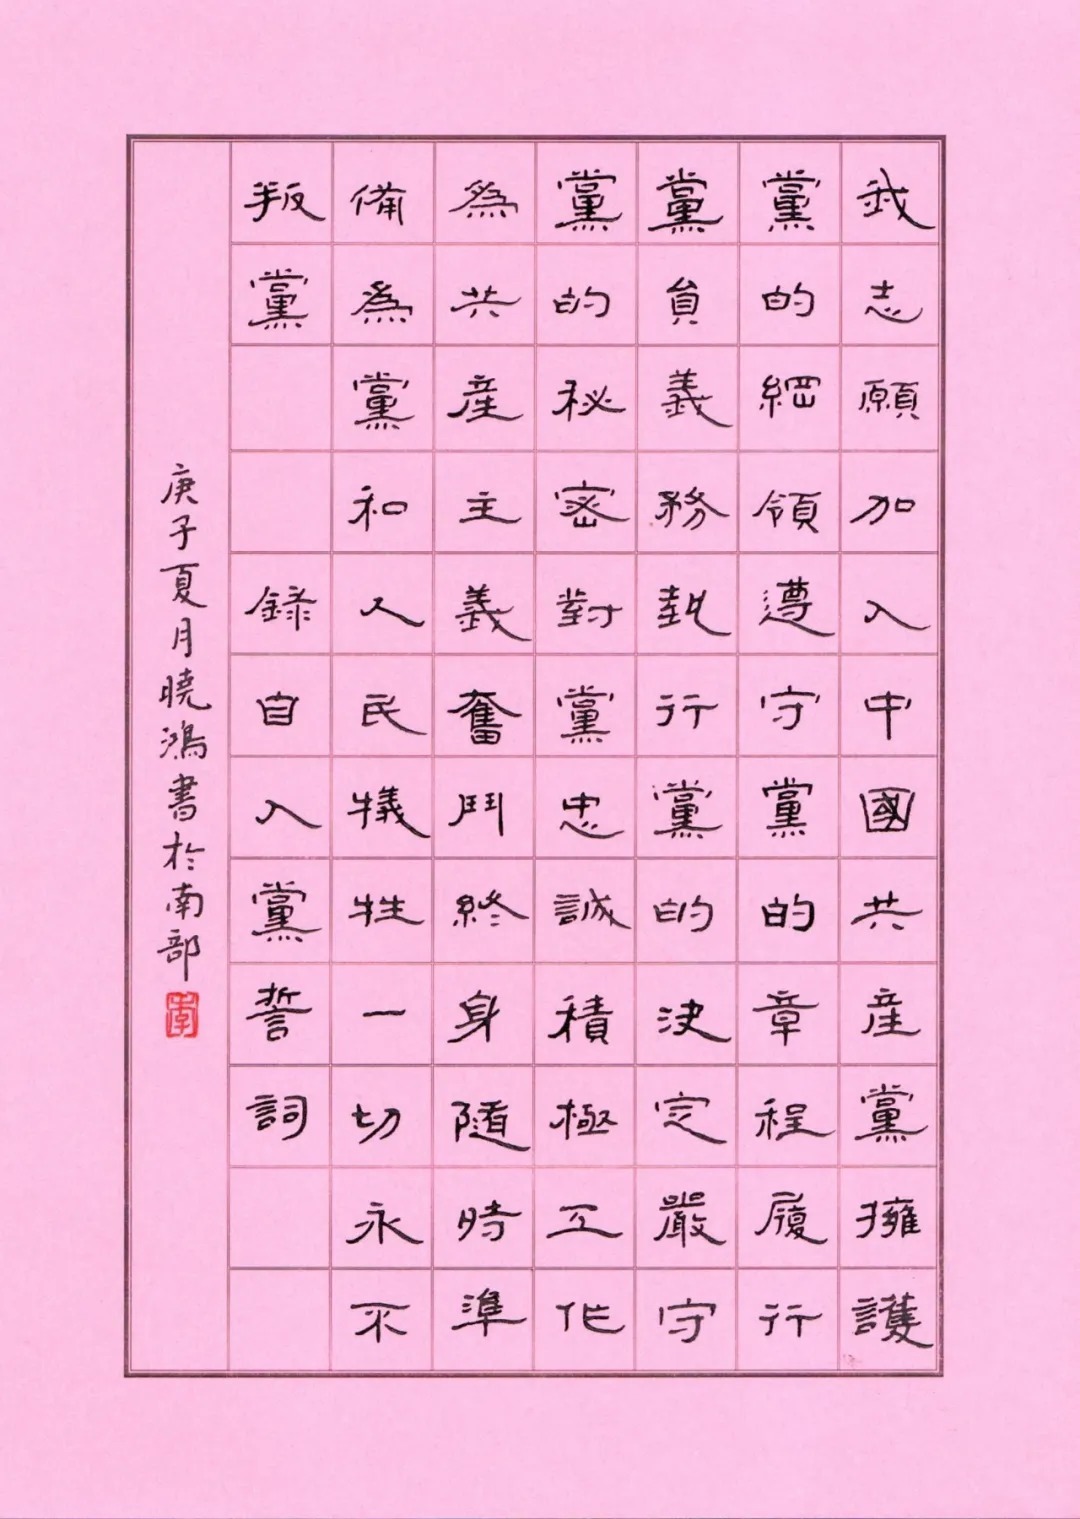 我志願加入中國共産黨擁護
黨的綱領遵守黨的章程履行
黨員義務執行黨的決定嚴守
黨的秘密對黨忠誠積極工作
為共産主義奮鬥終身隨時準
備為黨和人民犧牲一切永不
叛黨 錄自入黨誓詞
庚子夏月曉鴻書於南部